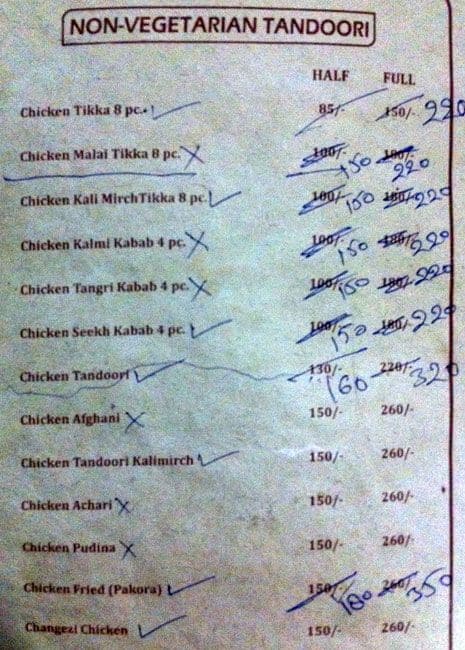 NON-VEGETARIAN TANDOORI
HALF FULL
Chicken Tikka 8 pc. 85/- 150/- 220
Chicken Malai Tikka 8 pc. 100/- 150 180/- 220
Chicken Kali MirchTikka 8 pc. 100/- 150 180/- 220
Chicken Kalmi Kabab 4 pc. 100/- 150 180/- 220
Chicken Tangri Kabab 4 pc. 100/- 150 180/- 220
Chicken Seekh Kabab 4 pc. 100/- 150 180/- 220
Chicken Tandoori 130/- 160 220/- 320
Chicken Afghani 150/- 260/-
Chicken Tandoori Kalimirch 150/- 260/-
Chicken Achari 150/- 260/-
Chicken Pudina 150/- 260/-
Chicken Fried (Pakora) 150/- 180 260/- 350
Changezi Chicken 150/- 260/-